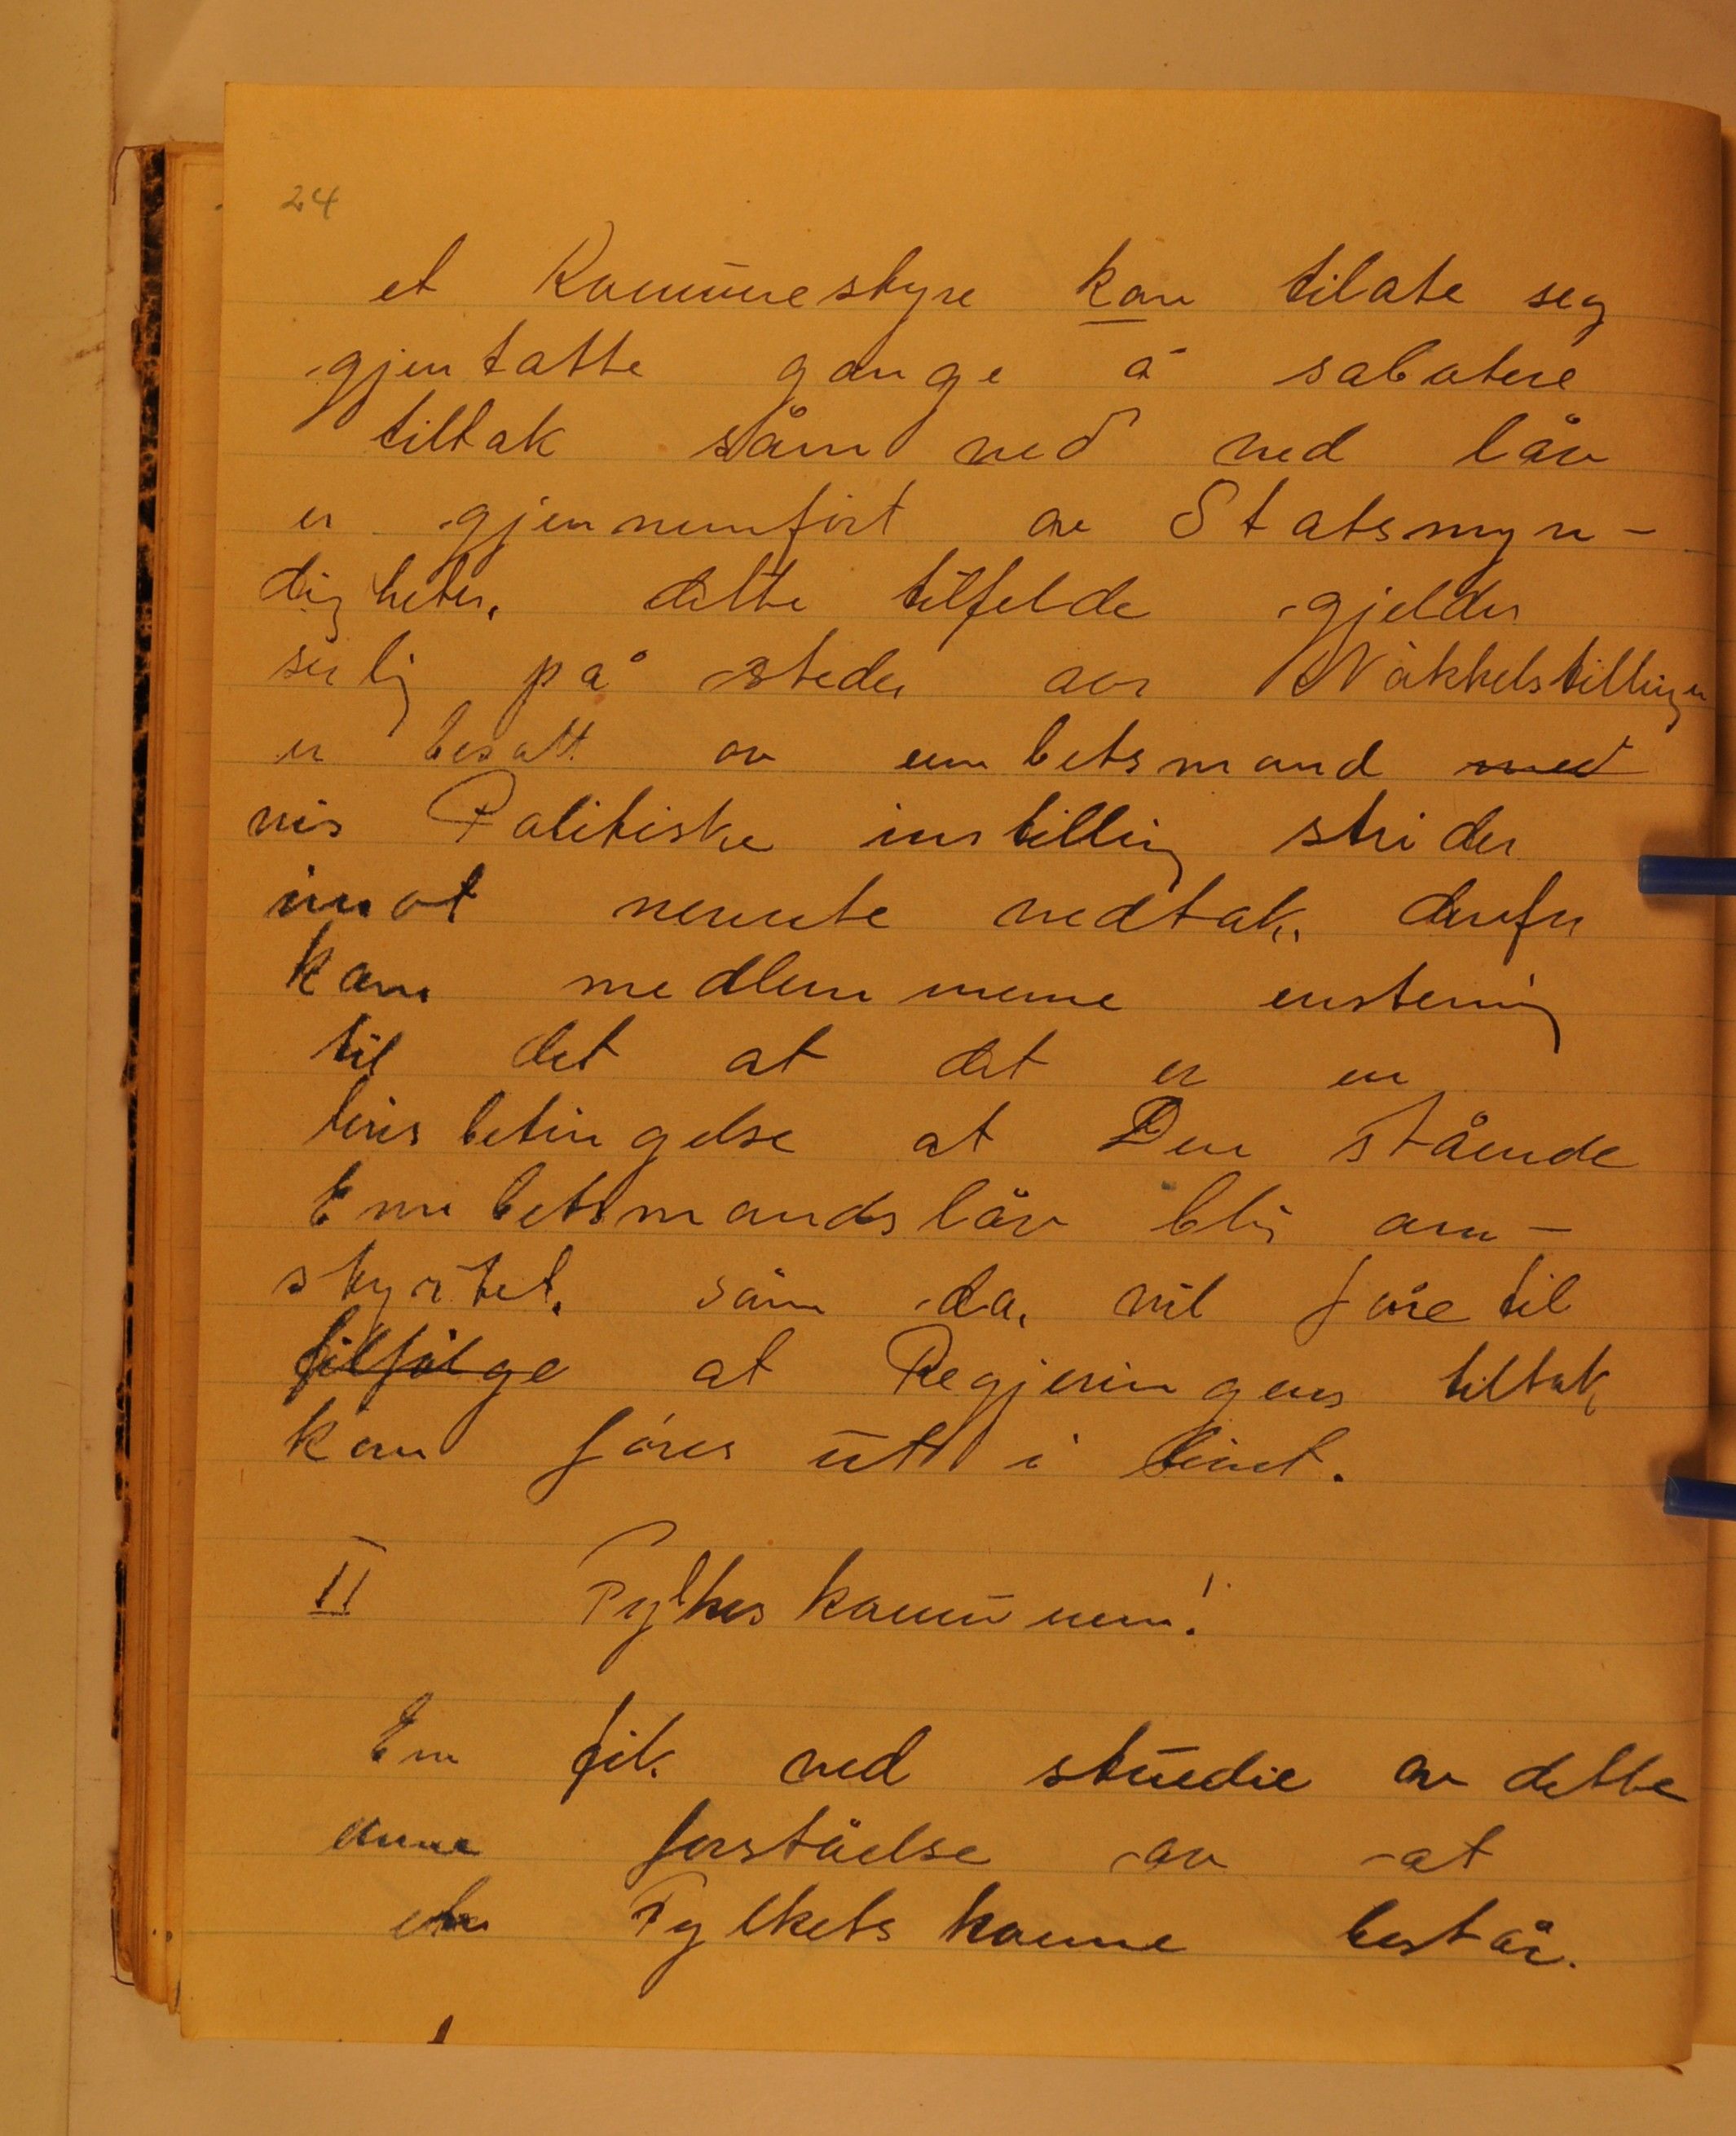 24
et Kommunestyre kan tilate seg
gjentatte gange å sabotere
tiltak såm ved ved låv
er gjennemfört av Statsmyn-
digheter. dette tilfelde gjelder
serlig på steder vor Nökkelstillinger
er besatt av embetsmand med
vis Politiske instilling strider
imot nevnte vedtak. derfor
kam medlemmene enstemig
til det at det er en
livsbetingelse at Den stående
Embetsmandslåv blir om-
styrtet. såm da, vil före til
tilfölge at Regjeringens tiltak
kan föres ut i livet.
II Fylkes kommunen!
En fik ved studie av dette
emne forståelse av at
Fylkets består.